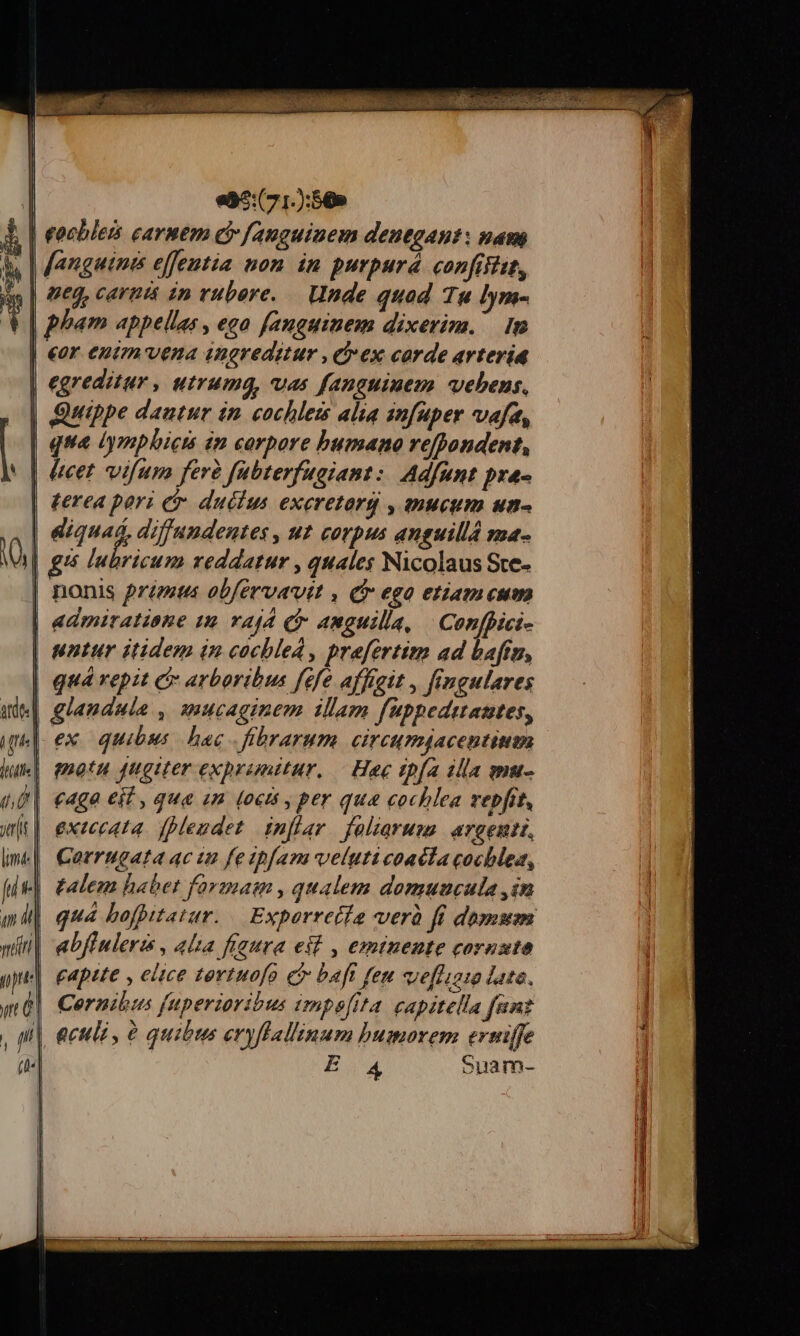 (71.)
cochleis carnem & ſanguinem denegant: nam
ſanguinis eſſentia non in purpurâ conſiſtit,
neq; carnis in rubore. Unde quod Tu lym-
pham appellas, ego ſanguinem dixerim. In
cor enim vena ingreditur, & ex corde arteria
egreditur, utrumq; vas ſanguinem vehens.
Quippe dantur in cochleis alia inſuper vaſa,
quæ lymphicis in corpore humano reſpondent,
licet viſum ferè ſubterfugiant: Adſunt præ-
terea pori & ductus excretorij, mucum un-
diquaq; diffundentes, ut corpus anguillâ ma-
gis lubricum reddatur, quales Nicolaus Ste-
nonis primus obſervavit, & ego etiam cum
admiratione in rajâ & anguilla. Conſpici-
untur itidem in cochleâ, præſertim ad baſin,
quâ repit & arboribus ſeſe affigit, ſingulares
glandulæ, mucaginem illam ſuppeditantes,
ex quibus hæc fibrarum circumjacentium
motu jugiter exprimitur. Hæc ipſa illa mu-
cago eſt, quæ in locis, per quæ cochlea repſit,
exiccata ſplendet inſtar foliorum argenti.
Corrugata ac in ſe ipſam veluti coacta cochlea,
talem habet formam, qualem domuncula, in
quâ hoſpitatur. Exporrecta verò ſi domum
abſtuleris, alia figura eſt, eminente cornuto
capite, elice tortuoſo & baſi ſeu veſtigio lato.
Cornibus ſuperioribus impoſita capitella ſunt
oculi, è quibus cryſtallinum humorem eruiſſe
E 4 Suam-